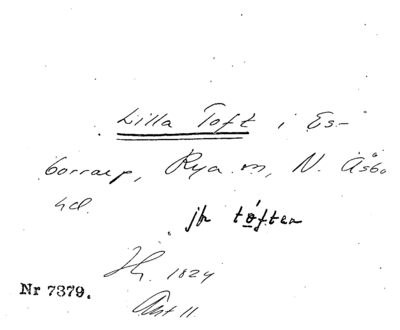 Lilla Toft i Es-
borrarp, Rya sn, N. Åsbo
hd.
jfr töften
1824
Nr 7379.
Akt 11